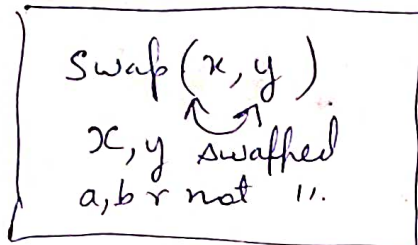 Swap (x, y)
x, y swapped
a, b r not 11.